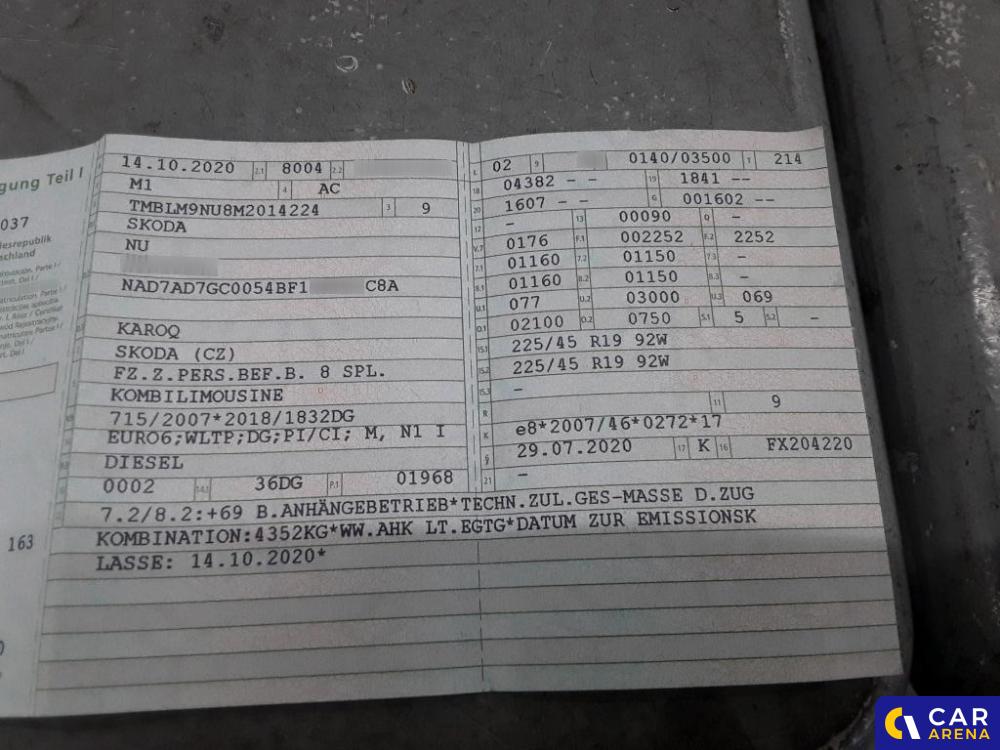 gung Teil I
037
desrepublik
chland
163
14.10.2020 2.1 8004 2.2
M1 4 AC
TMBLM9NU8M2014224 3 9
SKODA
NU
NAD7AD7GC0054BF1 C8A
KAROQ
SKODA (CZ)
FZ.Z.PERS.BEF.B. 8 SPL.
KOMBILIMOUSINE
715/2007*2018/1832DG
EURO6;WLTP;DG;PI/CI; M, N1 I
DIESEL
0002 14.1 36DG P.1 01968
L 02 9 0140/03500 T 214
18 04382 - - 19 1841 --
20 1607 - - G 001602 --
12 - 13 00090 Q -
V.7 0176 F.1 002252 F.2 2252
7.1 01160 7.2 01150 7.3 -
8.1 01160 8.2 01150 8.3 -
077 U.2 03000 U.3 069
O.1 02100 O.2 0750 S.1 5 S.2 -
15.1 225/45 R19 92W
15.2 225/45 R19 92W
15.3 -
R 11 9
K e8*2007/46*0272*17
6 29.07.2020 17 K 16 FX204220
21 -
7.2/8.2:+69 B.ANHÄNGEBETRIEB*TECHN.ZUL.GES-MASSE D.ZUG
KOMBINATION:4352KG*WW.AHK LT.EGTG*DATUM ZUR EMISSIONSK
LASSE: 14.10.2020*
CAR
ARENA